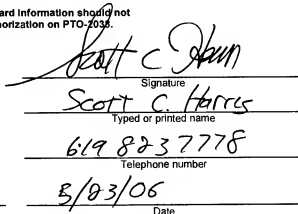 ard Information should not
horization on PTO-2038.
Scott C Harris
Signature
Scott C. Harris
Typed or printed name
619 823 7778
Telephone number
3/23/06
Date